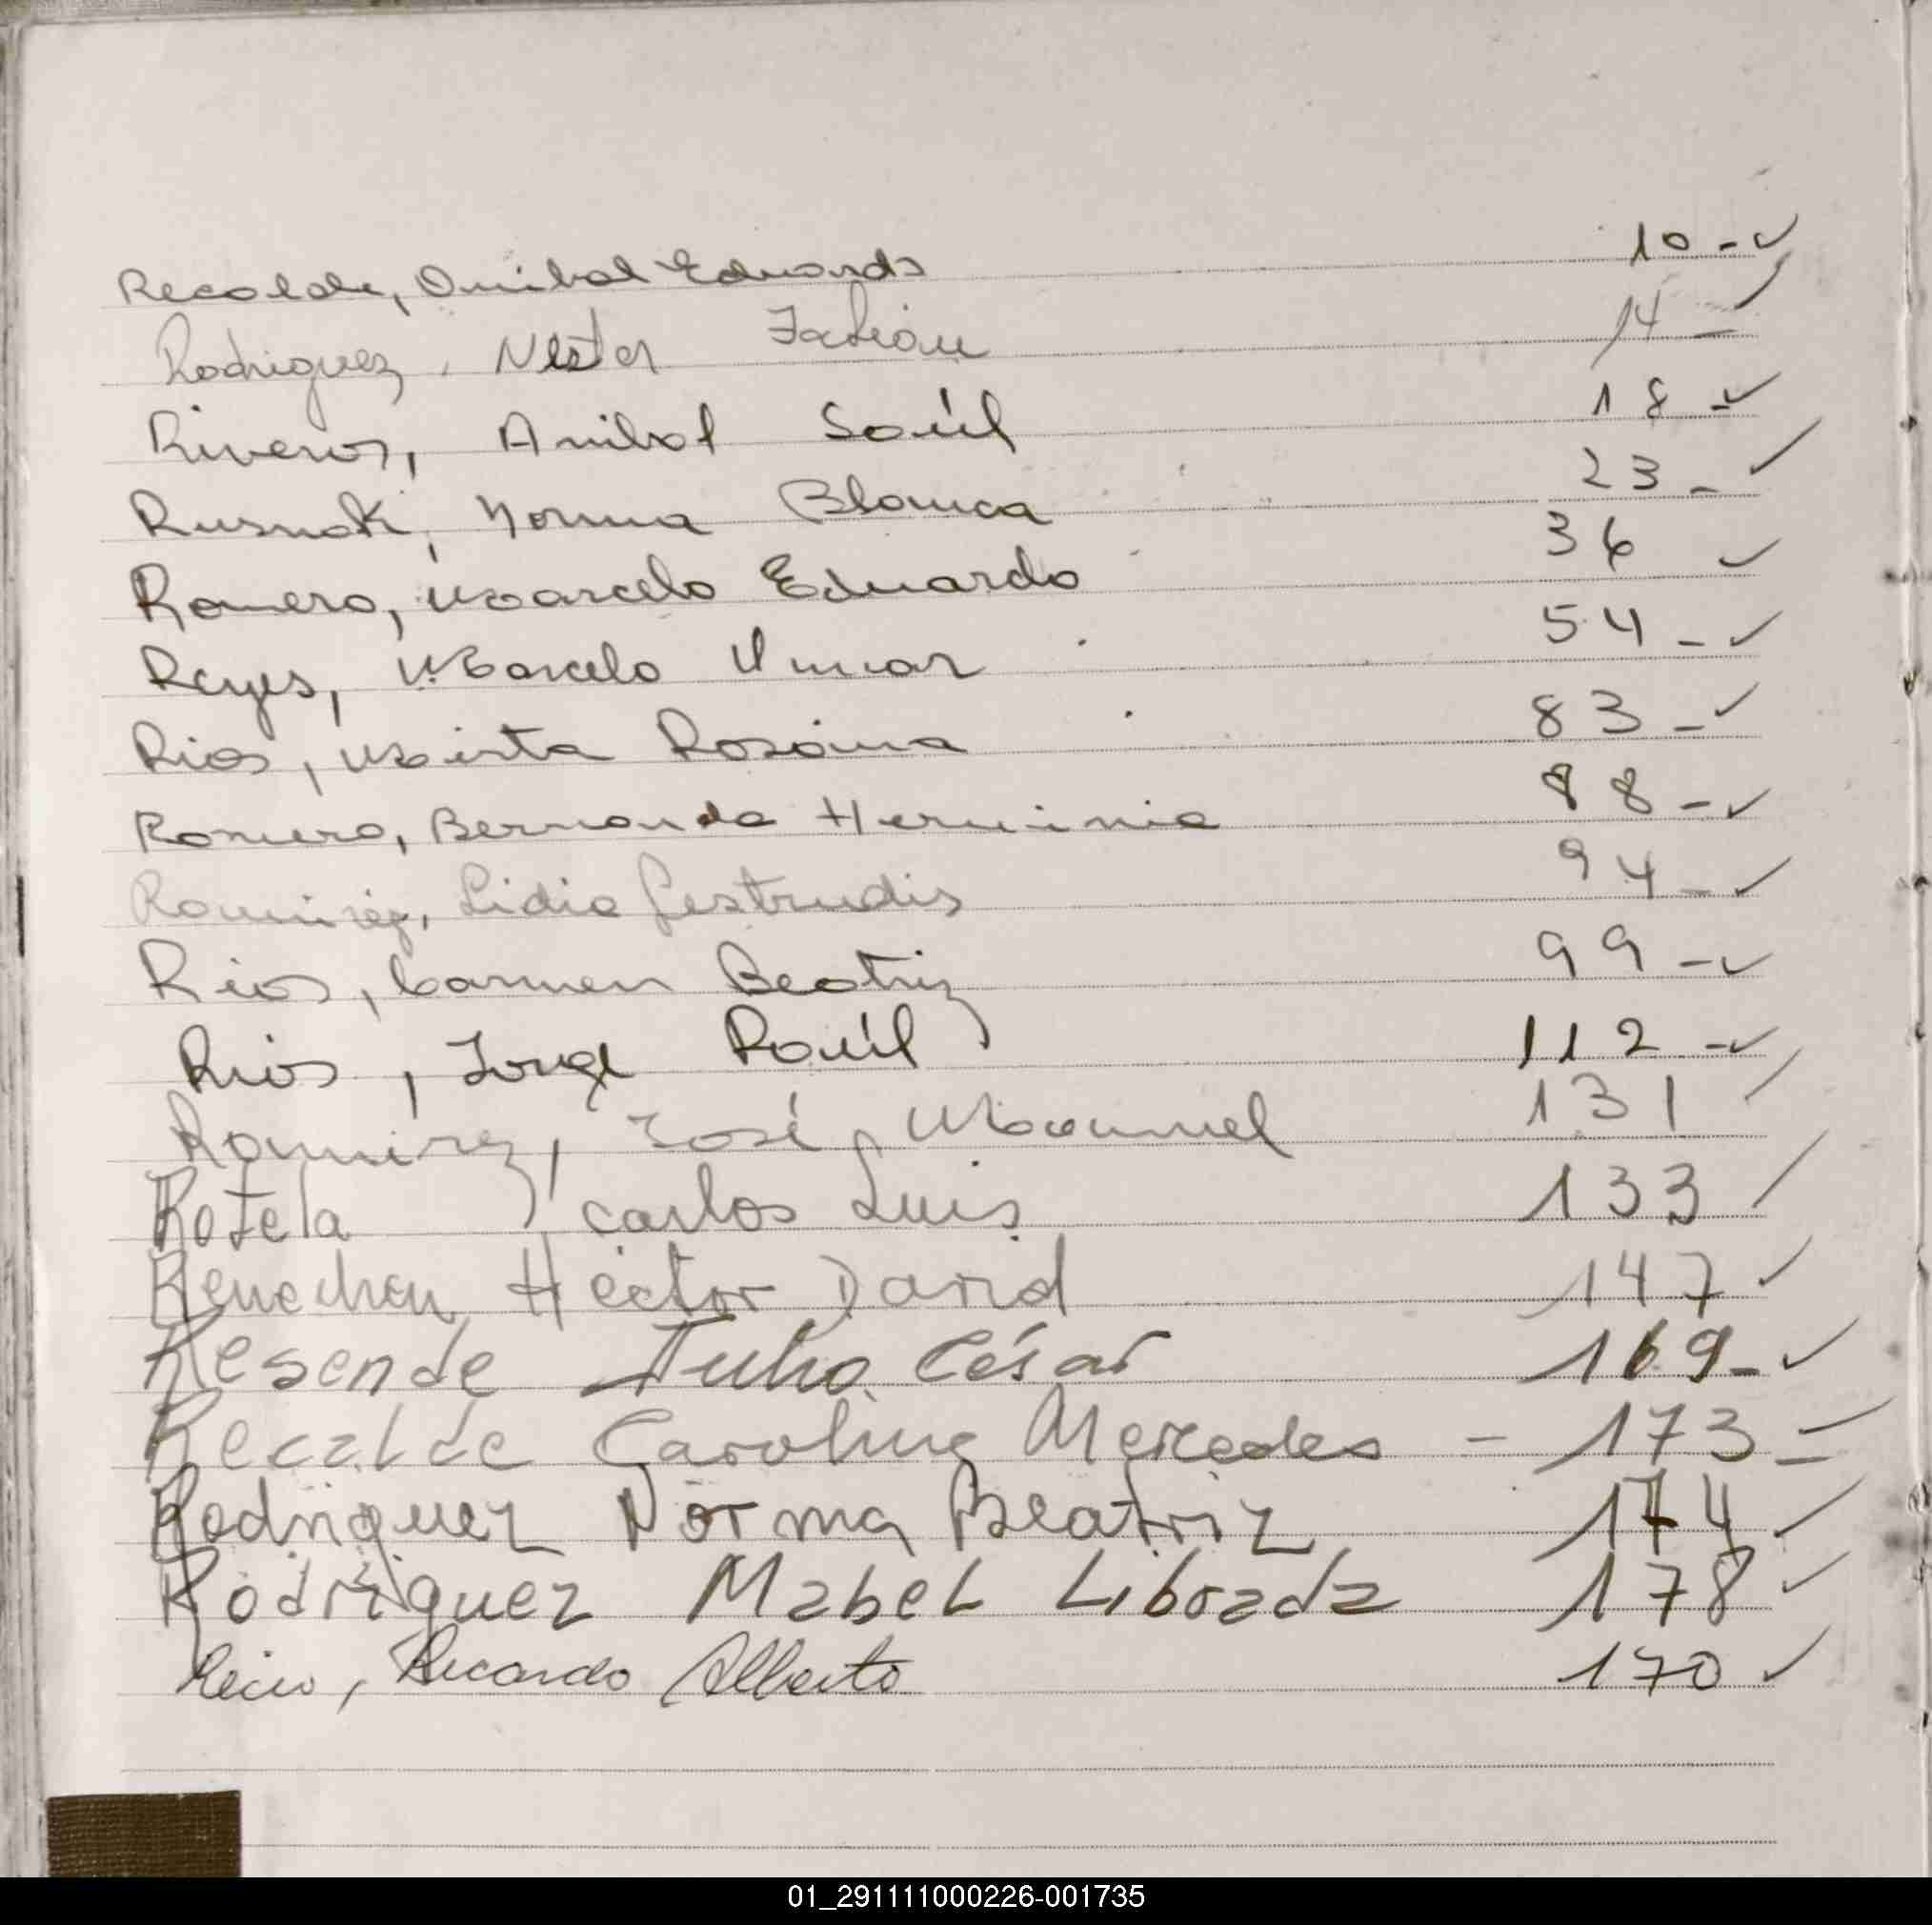 Recalde, Anibal Eduardo 10 - ✓
Rodriguez, Nestor Fabián 14 - ✓
Riveros, Anibal Saúl 18 - ✓
Rusnak, Norma Blanca 23 - ✓
Romero, Marcelo Eduardo 36 ✓
Reyes, Marcelo Omar 54 - ✓
Rios, Mirta Rosana 83 - ✓
Romero, Bernarda Herminia 88 - ✓
Ramirez, Lidia Gertrudis 94 - ✓
Rios, Carmen Beatriz 99 - ✓
Rios, Jorge Raúl 112 - ✓
Ramirez, José Manuel 131
Rotela Carlos Luis 133
Héctor David 147 ✓
Resende Julio César 169 - ✓
Recalde Carolina Mercedes - 173 -
Rodriguez Norma Beatriz 174 ✓
Rodriguez Mabel Librada 178 ✓
Ricardo Alberto 170 ✓
01_291111000226-001735